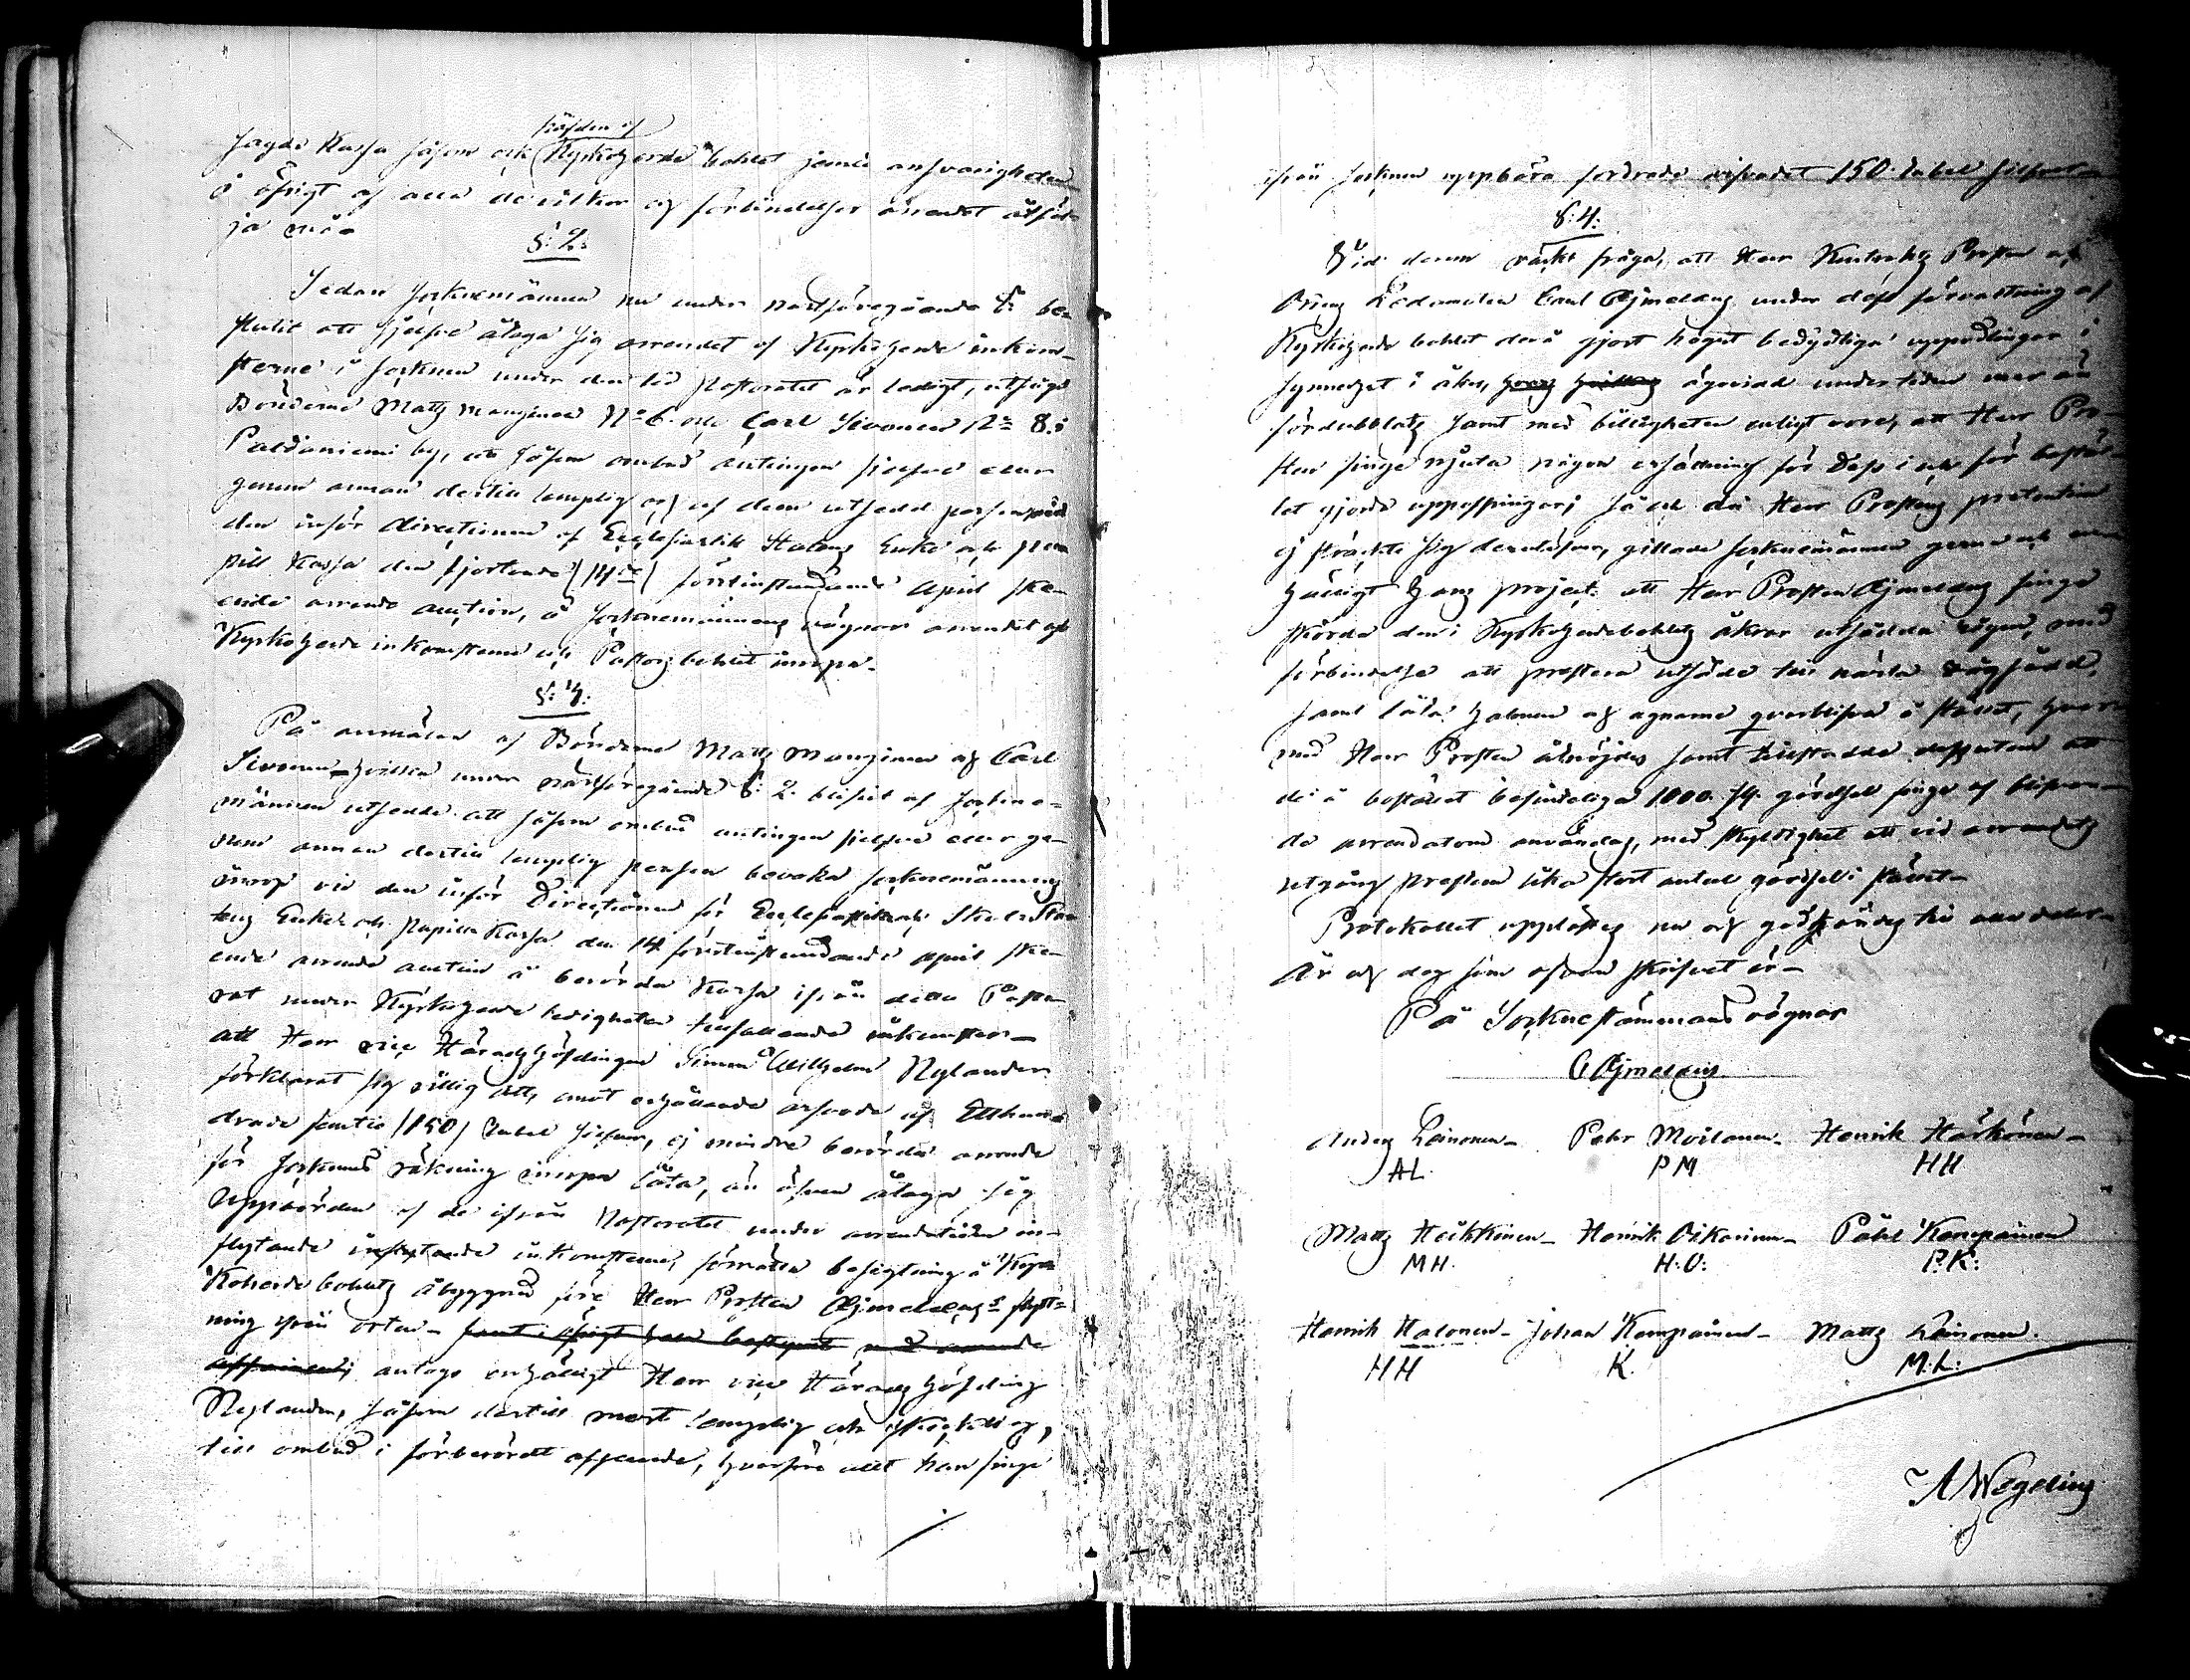 häfden af
sagde Kassa såsom ock Kyrkoherde bohlet jemte ansvarigheten
å öfrigt af alla de vilkor og förbindelser arrendet åtföl-
ja må.
§: 2.
Sedan Socknemännen nu under nästföregående §: be-
slutit att sjelfve åtaga sig arrendet af Kyrkoherde inkom-
sterne i Socknen under den tid Pastoratet är ledigt, utsågs
Bönderne Matts Manginen No 6. och Carl Sivonen No 8. i
Paldaniemi by, att såsom ombud antingen sjelfve eller
genom annan dertill lämplig och af dem utsedd person vid
den inför Directionen af Ecclesiastik Statens Enke och Pu-
pill Kassa den fjortonde (14de) förstinstundande April ske-
ende arrende auction, å Socknemännens vägnar arrendet af
Kyrkoherde inkomsterne och Pastors bohlet inropa.
§: 3.
På anmälan af Bönderne Matts Manginen og Carl
Sivonen hvilka under nästföregående §: 2. blifvit af Sockne-
männen utsedde att såsom ombud antingen sjelfve eller ge-
nom annan dertill lämplig person bevaka Socknemännens
inrop vid den inför Directionen för Ecclesiastik och Skole Sta-
tens Enke och Pupill Kassa den 14 förstinstundande April ske-
ende arrende auction å berörda Kassa ifrån detta Pasto-
rat under Kyrkoherde ledigheten tillfallande inkomster
att Herr vice Häradshöfdingen Simon Wilhelm Nylander
förklarat sig villig att, emot erhållande arfvode af Etthun-
drade femtio (150) Rubel Silfver, ej mindre berörda arrende
för Socknens räkning inropa låta, än äfven åtaga sig
uppbörden af de ifrån Pastoratet under arrendetiden in-
flytande inflytande inkomsterne, förrätta besigtning å Kyr-
koherde bohlets åbyggnad före Herr Prosten Ajmelæi flytt-
ning ifrån orten samt i öfrigt
antogs enhälligt Herr vice Häradshöfding
Nylander, såsom dertill mest lämplig och skicklig,
till ombud i förberördt afseende, hvarföre att han finge
ifrån Socknen uppbära fordrade arfvodet 150. Rubel Silfver
§: 4.
Vid derom väckt fråga, att Herr Contracts Prosten og
Ledamoten Carl Ajmelæus under dess förvaltning af
Kyrkoherde bohlet derå gjort högst betydliga uppodlingar i
synnerhet i åker, ägovidd undertiden mer än
fördubblats samt med billigheten enligt vore, att Herr Pro-
sten finge njuta någon ersättning för dess i och för bostäl-
let gjorde uppoffringar; så och då Herr Prostens pretention
ej sträckte sig derutöfver, gillade Socknemännen gerna och en-
hälligt hans project att Herr Prosten Ajmelæus finge
skörda den i Kyrkoherdebohlets åkrar utsådda rågen, med
förbindelse att prestera utsäde till nästa rågsådd,
samt låta halmen og agnarne qvarblifva å stället, hvar-
med Herr Prosten åtnöjdes samt tillstadde dessutom att
de å bostället befintelige 1000. st. gärdsel finge af blifvan-
de arrendatorn användas, med skyldighet att vid arrendets
utgång prestera lika stort antal gärdsel i stället
Protokollet upplästes nu og godkändes
År og dag som ofvan skrifvet är
På Sockne stämmans vägnar
C Ajmelæus
Anders Leinonen Pehr Moilanen Henrik Härkönen
AL. PM HH
Matts Heikkinen Henrik Oikarinen Påhl Kompainen
MH. H.O: P.K:
Henrik Halonen Johan Kompainen Matts Leinonen.
HH K. M:L:
A Wegelius